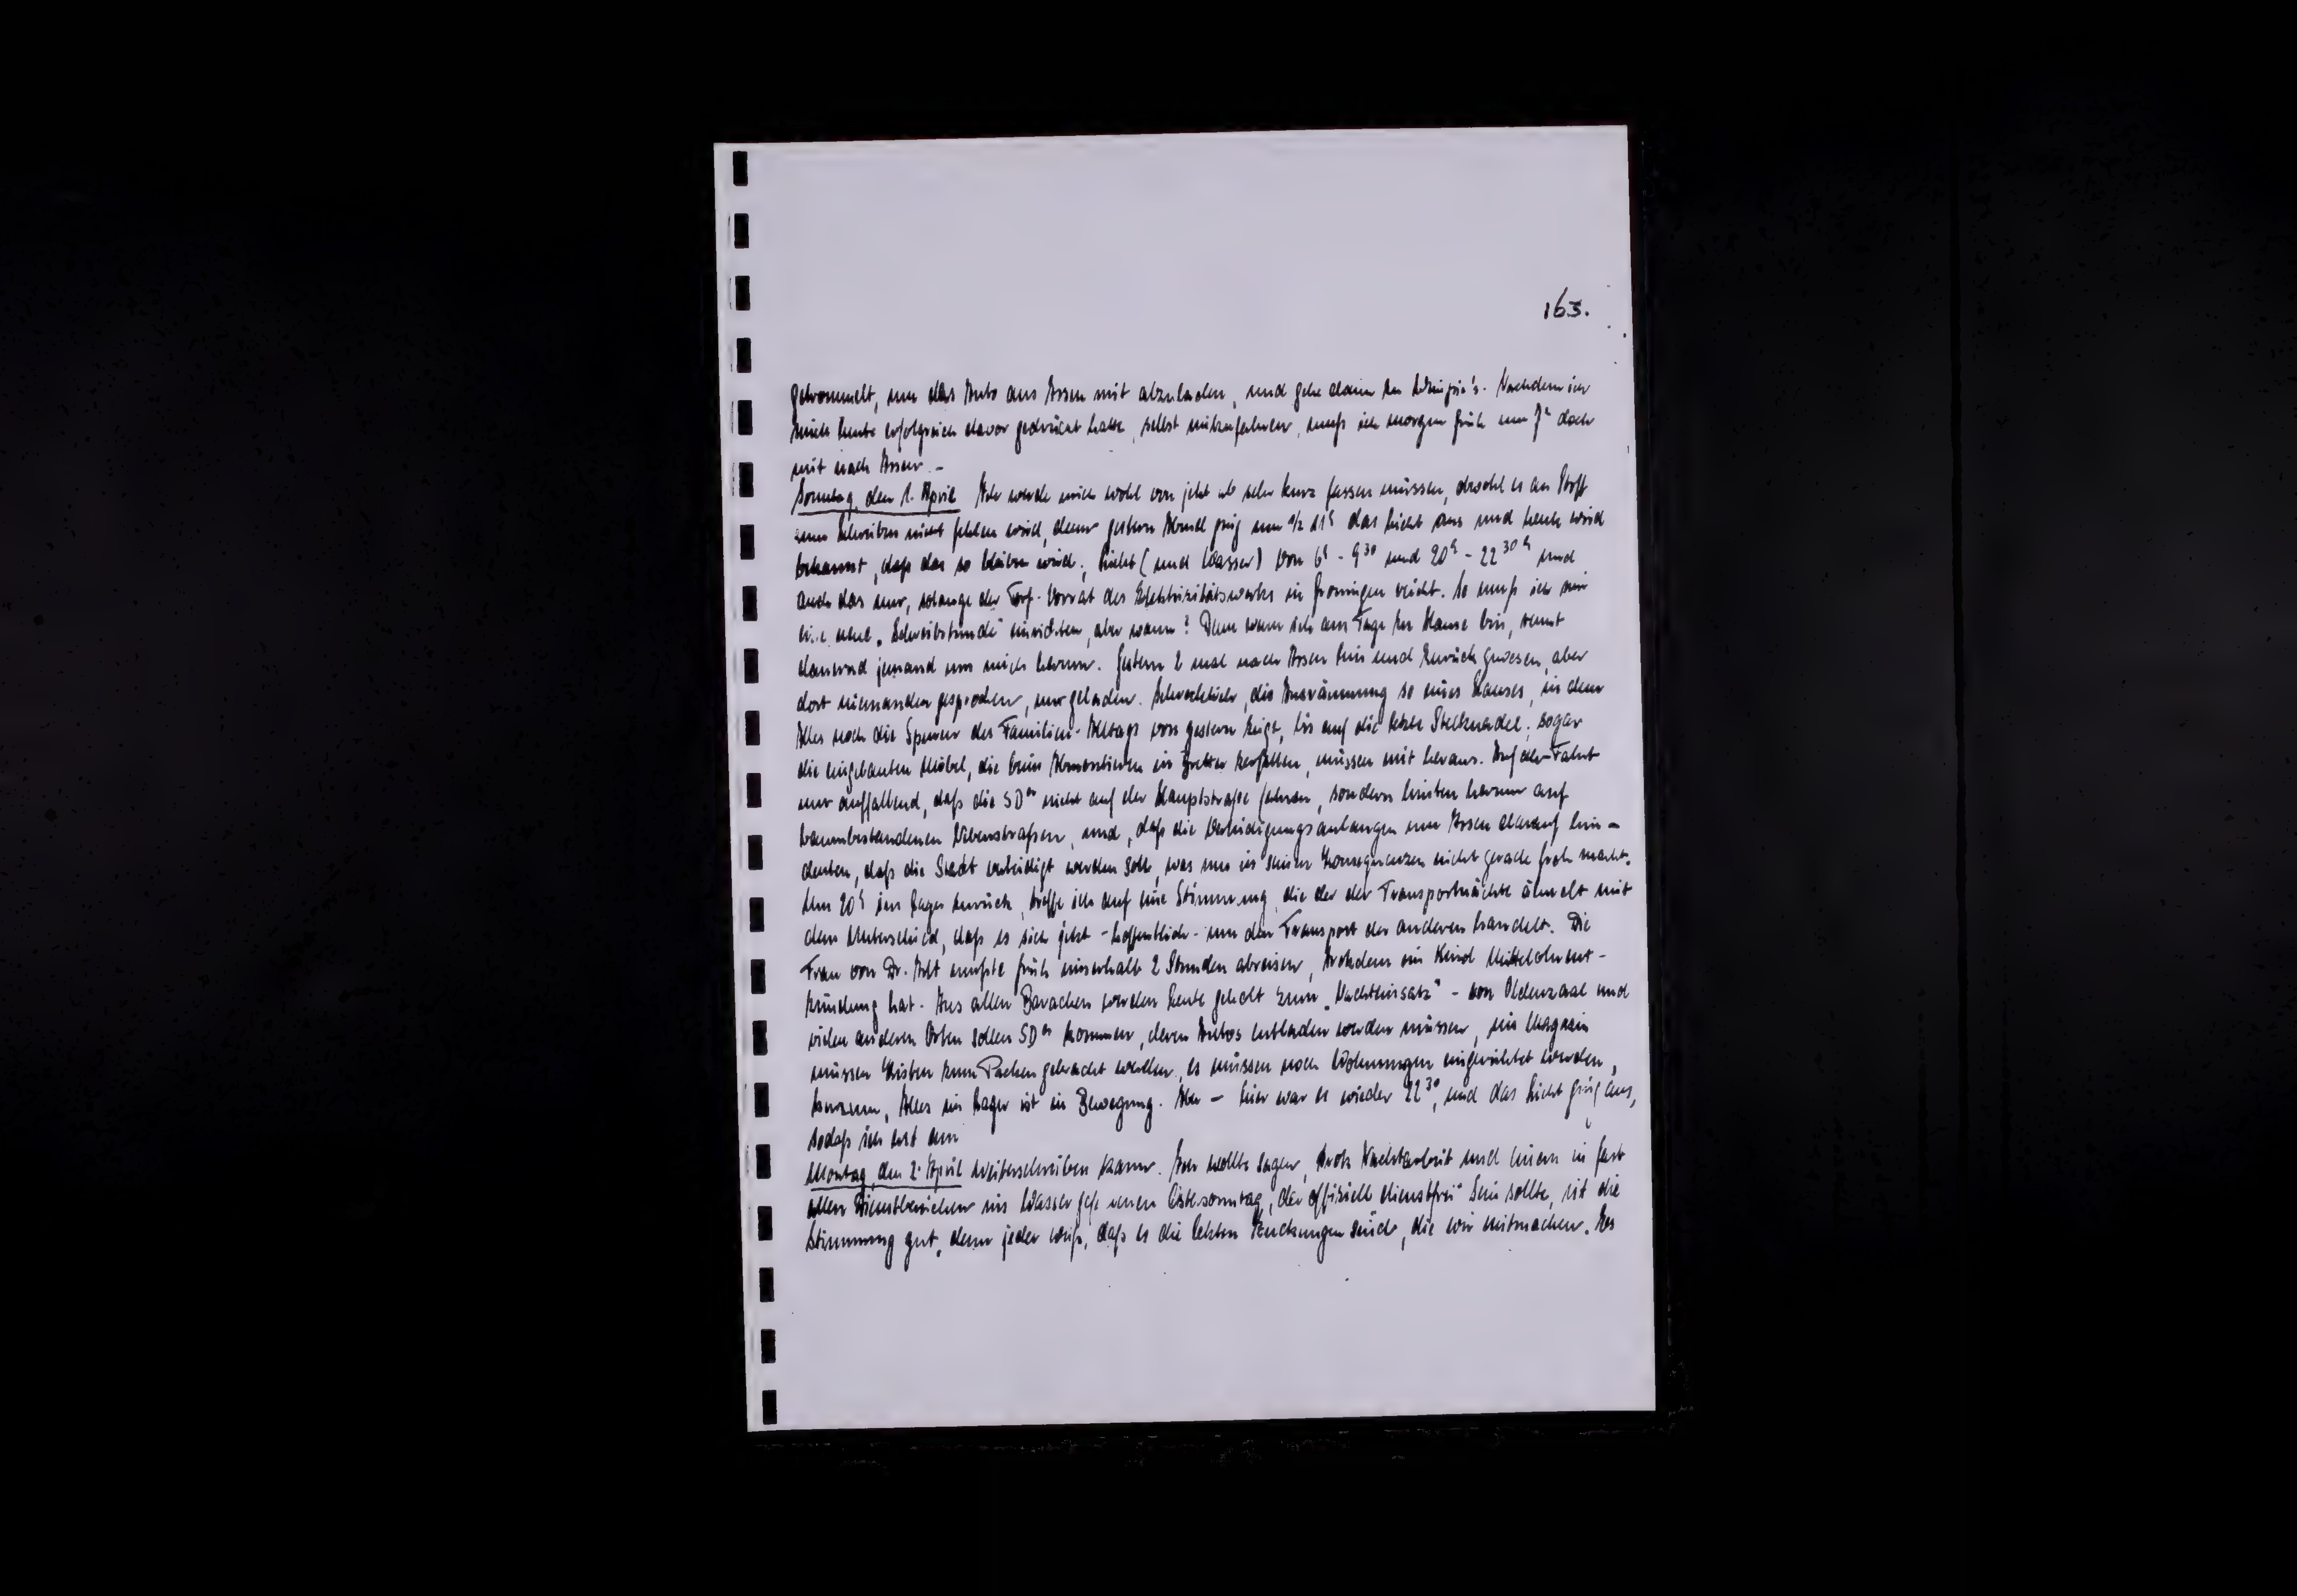 163.
getrommelt, um das Auto aus Assen mit abzuladen, und gehe dann zu. Nachdem ich
mich heute erfolgreich davor gedrückt hatte, selbst mitzufahren, muss ich morgen früh um 7h doch
mit nach Assen. –
Sonntag, den 1. April Ich werde mich wohl von jetzt ab sehr kurz fassen müssen, obwohl es an Stoff
zum Schreiben nicht fehlen wird, denn gestern Abend ging um ½ 11h das Licht aus und heute wird
bekannt, daß das so bleiben wird; Licht (und Wasser) von 6h - 9 30 und 20h - 22 30 h und
auch das nur, solange der Torf-Vorrat des Elektrizitätswerkes in Groningen reicht. So muß ich mir
eine neue „Schreibstunde" einrichten, aber wann? Denn wenn ich am Tage zu Hause bin, rennt
dauernd jemand um mich herum. Gestern 2 mal nach Assen hin und zurück gewesen, aber
dort niemanden gesprochen, nur geladen. Schrecklich, die Ausräumung so eines Hauses, in dem
Alles noch die Spuren des Familien-Alltags von gestern zeigt, bis auf die letzte Stecknadel; sogar
die eingebauten Möbel, die beim Abmontieren in Bretter zerfallen, müssen mit heraus. Auf der Fahrt
nur auffallend, daß die SDer nicht auf der Hauptstraße fahren, sondern hinten herum auf
baumbestandenen Nebenstraßen, und, daß die Verteidigungsanlangen um Assen darauf hin-
deuten, daß die Stadt verteidigt werden soll, was uns in seinen Konsequenzen nicht gerade froh macht.
Um 20h ins Lager zurück, treffe ich auf eine Stimmung, die der der Transportnächte ähnelt mit
dem Unterschied, daß es sich jetzt - hoffentlich - um den Transport der anderen handelt. Die
Frau von Dr. mußte früh innerhalb 2 Stunden abreisen, trotzdem ein Kind Mittelohrent-
zündung hat. Aus allen Baracken werden Leute geholt zum „Nachteinsatz" - von Oldenzaal und
vielen anderen Orten sollen SDer kommen, deren Autos entladen werden müssen, im Magazin
müssen Kisten zum Packen gebracht werden, es müssen noch Wohnungen eingerichtet werden,
kurzum, Alles im Lager ist in Bewegung. Aber - hier war es wieder 22 30, und das Licht ging aus,
sodaß ich erst am
Montag, den 2. April weiterschreiben kann. Ich wollte sagen, trotz Nachtarbeit und einem in fast
allen Dienstbereichen ins Wasser gefallenen Ostersonntag, der offiziell dienstfrei sein sollte, ist die
Stimmung gut, denn jeder weiß, daß es die letzten Zuckungen sind, die wir mitmachen. Es